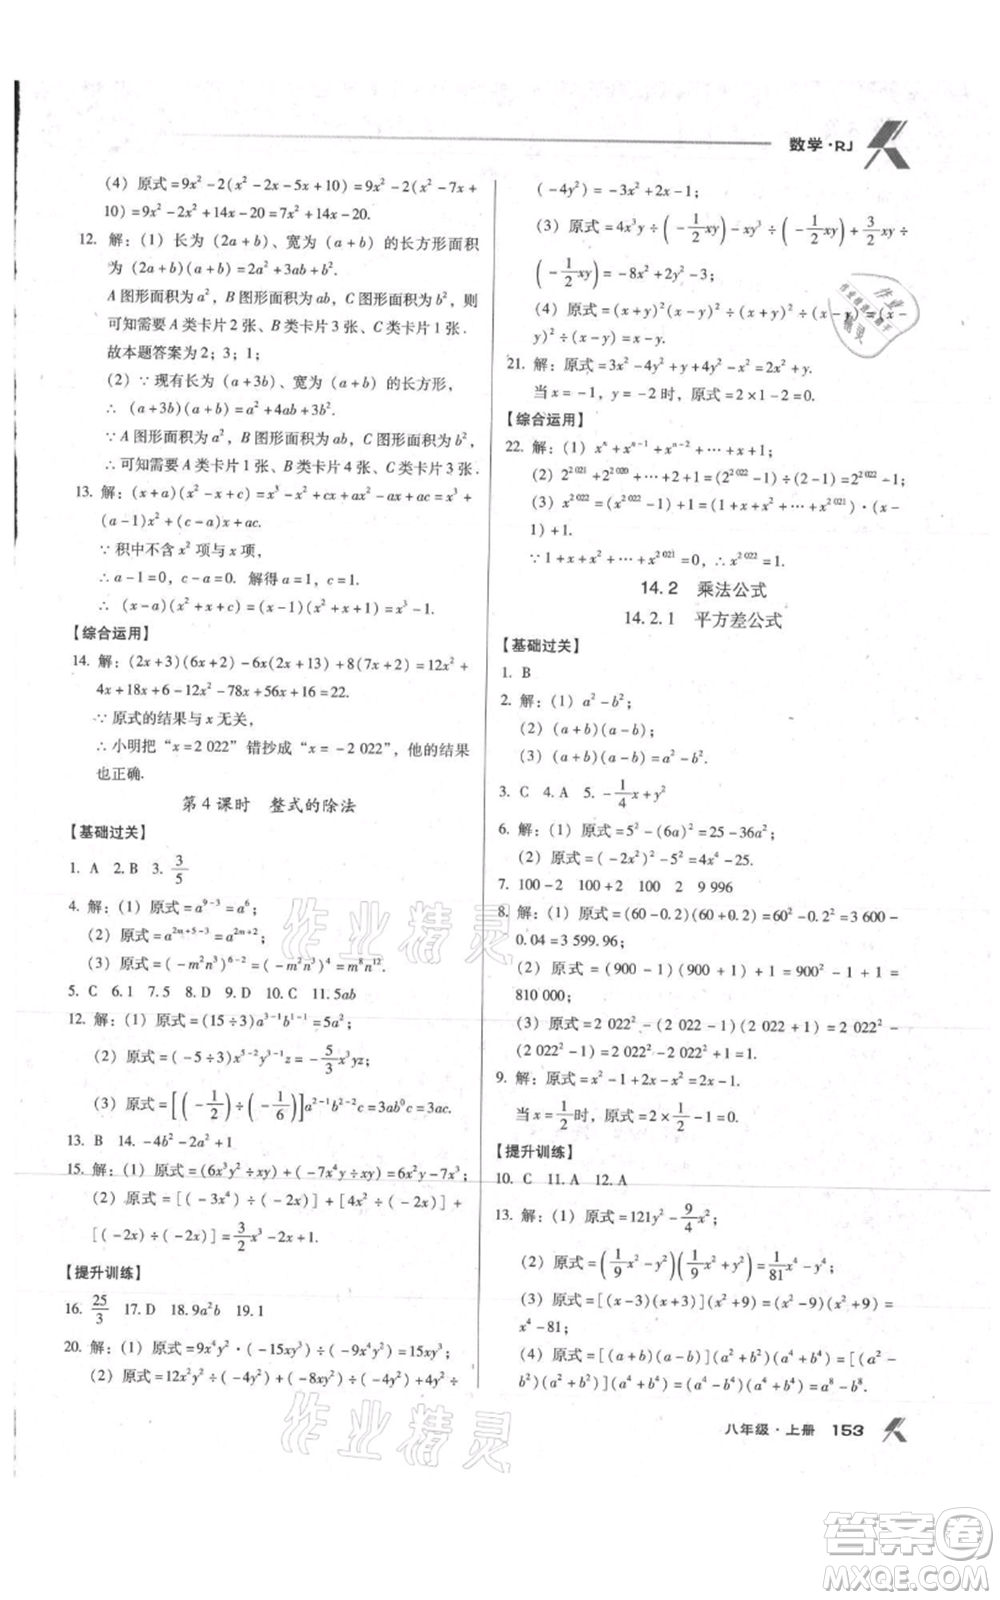 数学·RJ
(4) 原式=9x²-2(x²-2x-5x+10)=9x²-2(x²-7x+
10)=9x²-2x²+14x-20=7x²+14x-20.
12. 解:(1) 长为 (2a+b)、宽为 (a+b) 的长方形面积
为 (2a+b)(a+b)=2a²+3ab+b²,
A 图形面积为 a², B 图形面积为 b², C 图形面积为 ab, 则
可知需要 A 类卡片 2 张、B 类卡片 3 张、C 类卡片 1 张.
故本题答案为 2; 3; 1;
(2) ∵ 现有长为 (a+3b)、宽为 (a+b) 的长方形,
∴ (a+3b)(a+b)=a²+4ab+3b²,
∵ A 图形面积为 a², B 图形面积为 b², C 图形面积为 ab,
∴ 可知需要 A 类卡片 1 张、B 类卡片 3 张、C 类卡片 4 张.
13. 解: (x+a)(x²-x+c)=x³-x²+cx+ax²-ax+ac=x³+
(a-1)x²+(c-a)x+ac.
∵ 积中不含 x² 项与 x 项,
∴ a-1=0, c-a=0. 解得 a=1, c=1.
∴ (x-a)(x²+x+c)=(x-1)(x²+x+1)=x³-1.
【综合运用】
14. 解: (2x+3)(6x+2)-6x(2x+13)+8(7x+2)=12x²+
4x+18x+6-12x²-78x+56x+16=22,
∵ 原式的结果与 x 无关,
∴ 小明把“x=2 022”错抄成“x=-2 022”, 他的结果
也正确.
第 4 课时 整式的除法
【基础过关】
1. A 2. B 3. 3/5
4. 解:(1) 原式=a⁹⁻³=a⁶;
(2) 原式=a²ᵐ⁺⁵⁻³=a²ᵐ⁺²;
(3) 原式=(-m²n³)⁶⁻²=(-m²n³)⁴=m⁸n¹².
5. C 6. 1 7. 5 8. D 9. D 10. C 11. 5ab
12. 解:(1) 原式=(15÷3)a³⁻¹b¹⁻¹=5a²;
(2) 原式=(-5÷3)x⁵⁻²y³⁻¹z=-5/3x³yz;
(3) 原式=[(-1/2)÷(-1/6)]a²⁻¹b²⁻²c=3ab⁰c=3ac.
13. B 14. -4b²-2a²+1
15. 解:(1) 原式=(6x³y²÷xy)+(-7x⁴y÷xy)=6x²y-7x³;
(2) 原式=[(-3x⁴)÷(-2x)]+[4x²÷(-2x)]+
[(-2x)÷(-2x)]=3/2x³-2x+1.
【提升训练】
16. 25/3 17. D 18. 9a²b 19. 1
20. 解:(1) 原式=9x⁴y²·(-15xy³)÷(-9x⁴y²)=15xy³;
(2) 原式=12x²y²÷(-4y²)+(-8xy²)÷(-4y²)+4y²÷
(-4y²)=-3x²+2x-1;
(3) 原式=4x³y÷(-1/2xy)-xy³÷(-1/2xy)+3/2xy÷
(-1/2xy)=-8x²+2y²-3;
(4) 原式=(x+y)³÷(x+y)²÷(x-y)÷(x-
y)²=(x+y)(x-y)=x²-y².
21. 解: 原式=3x²-4y²+y+4y²-x²=2x²+y.
当 x=-1, y=-2 时, 原式=2×1-2=0.
【综合运用】
22. 解:(1) xⁿ+xⁿ⁻¹+xⁿ⁻²+…+x+1;
(2) 2²⁰²¹+2²⁰²⁰+…+2+1=(2²⁰²²-1)÷(2-1)=2²⁰²²-1;
(3) x²⁰²²=(x²⁰²²-1)+1=(1+x+x²+…+x²⁰²¹)·(x-
1)+1.
∵ 1+x+x²+…+x²⁰²¹=0, ∴ x²⁰²²=1.
14.2 乘法公式
14.2.1 平方差公式
【基础过关】
1. B
2. 解:(1) a²-b²;
(2) (a+b)(a-b);
(3) (a+b)(a-b)=a²-b².
3. C 4. A 5. -1/4x+y²
6. 解:(1) 原式=5²-(6a)²=25-36a²;
(2) 原式=(-2x²)²-5²=4x⁴-25.
7. 100-2 100+2 100 2 9 996
8. 解:(1) 原式=(60-0.2)(60+0.2)=60²-0.2²=3 600-
0.04=3 599.96;
(2) 原式=(900-1)(900+1)+1=900²-1²+1=
810 000;
(3) 原式=2 022²-(2 022-1)(2 022+1)=2 022²-
(2 022²-1²)=2 022²-2 022²+1=1.
9. 解: 原式=x²-1+2x-x²=2x-1.
当 x=1/2时, 原式=2×1/2-1=0.
【提升训练】
10. C 11. A 12. A
13. 解:(1) 原式=121y²-9/4x²;
(2) 原式=(1/9x²-y²)(1/9x²+y²)=1/81x⁴-y⁴;
(3) 原式=[(x-3)(x+3)](x²+9)=(x²-9)(x²+9)=
x⁴-81;
(4) 原式=[(a+b)(a-b)](a²+b²)(a⁴+b⁴)=[(a²-
b²)(a²+b²)](a⁴+b⁴)=(a⁴-b⁴)(a⁴+b⁴)=a⁸-b⁸.
八年级·上册 153
作业精灵
作业精灵
答案卷
MXQE.COM